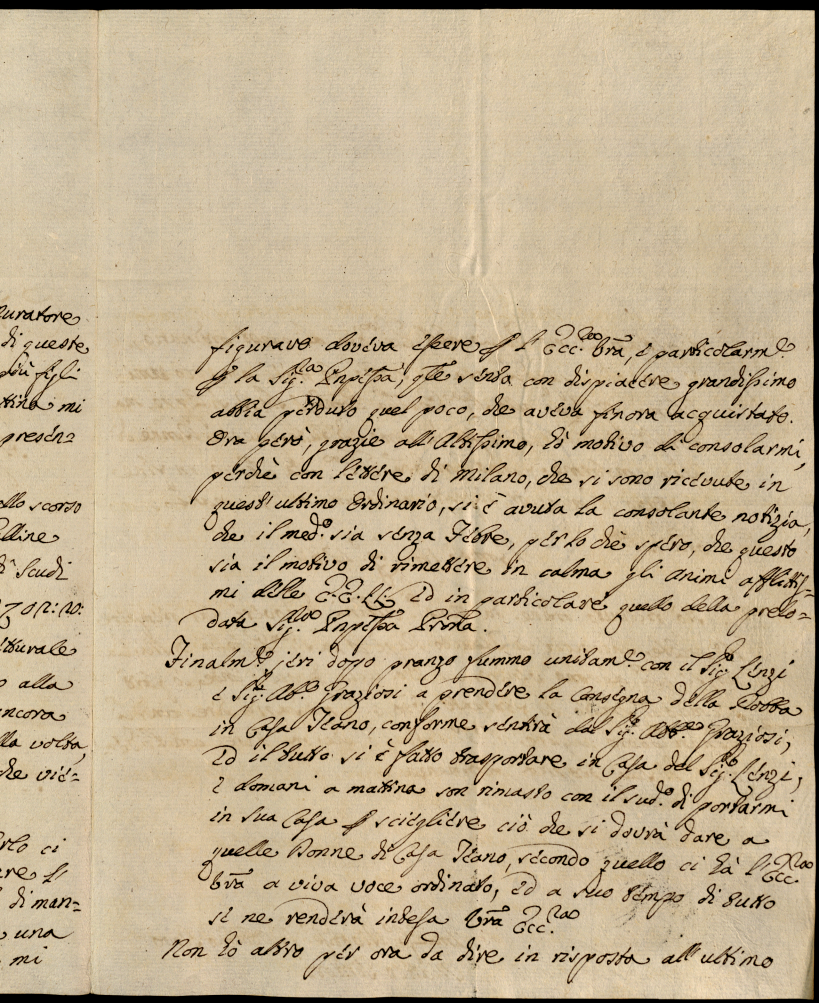 uratore
di queste
più figli
ttina mi
presen=
llo scorso
elline
di Scudi
itturale
o alla
ancora
lla volta,
che vie=
ci
di man=
una
mi
figuravo doveva essere p l'Ecc.za Vrã, e particolarm.e
p la Sig.ra Pnpessa, q̃le senta con dispiacere grandissimo
abbia perduto quel poco, che aveva finora acquistato.
Ora però, grazie all'Altissimo, hò motivo di consolarmi,
perchè con lettere di Milano, che si sono ricevute in
quest'ultimo Ordinario, si è avuta la consolante notizia,
che il med.o sia senza Febre, perlochè spero, che questo
sia il motivo di rimettere in calma gli animi afflittis=
mi delle E.E. LL. ed in particolare quello della prelo=
data Sig.ra Pnpessa Prõna.
Finalm.e jeri dopo pranzo fummo unitam.e con il Sig.r Lenzi
e Sig.r Ab.e Graziosi a prendere la consegna della Robba
in Casa Teano, conforme sentirà dal Sig.r Abb.e Graziosi,
ed il tutto si è fatto trasportare in Casa del Sig.r Lenzi,
e domani a mattina son rimasto con il sud.o di portarmi
in sua Casa p sciegliere ciò che si dovrà dare a
quelle Donne di Casa Teano, secondo quello ci hà l'Ecc.za
Vrã a viva voce ordinato, ed a suo tempo di tutto
si ne renderà intesa Vrã Ecc.za
Non hò altro per ora da dire in risposta all'ultimo